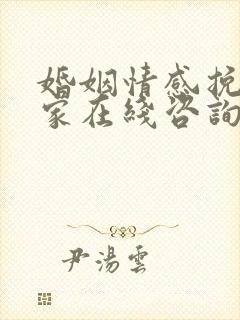 婚姻情感挽
家在綫咨詢
尹湯雲